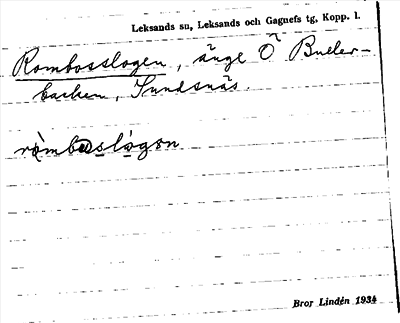 Leksands sn, Leksands och Gagnefs tg, Kopp. l.
Rombosslogen, änge Ö Buller-
backen, Sundsnäs.
ròmbosslógǝn
Bror Lindén 1934